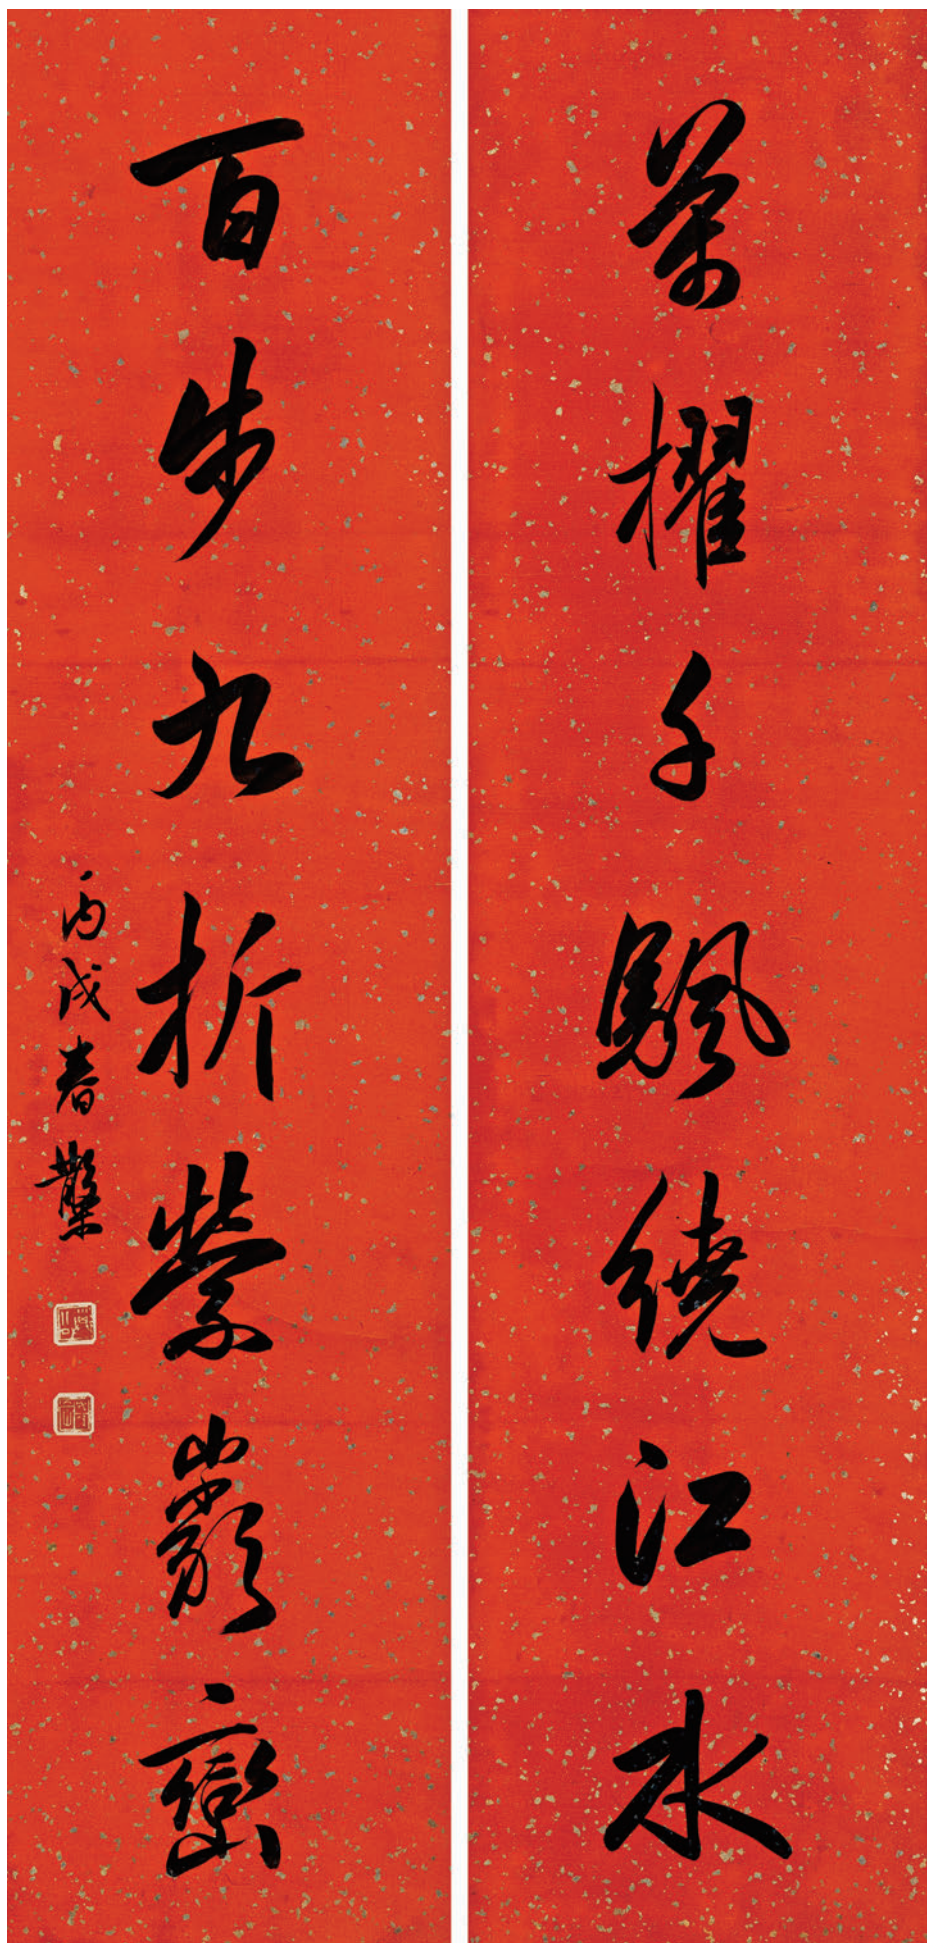 萬櫂千飄繞江水
百步九折縈巖巒
丙戌春